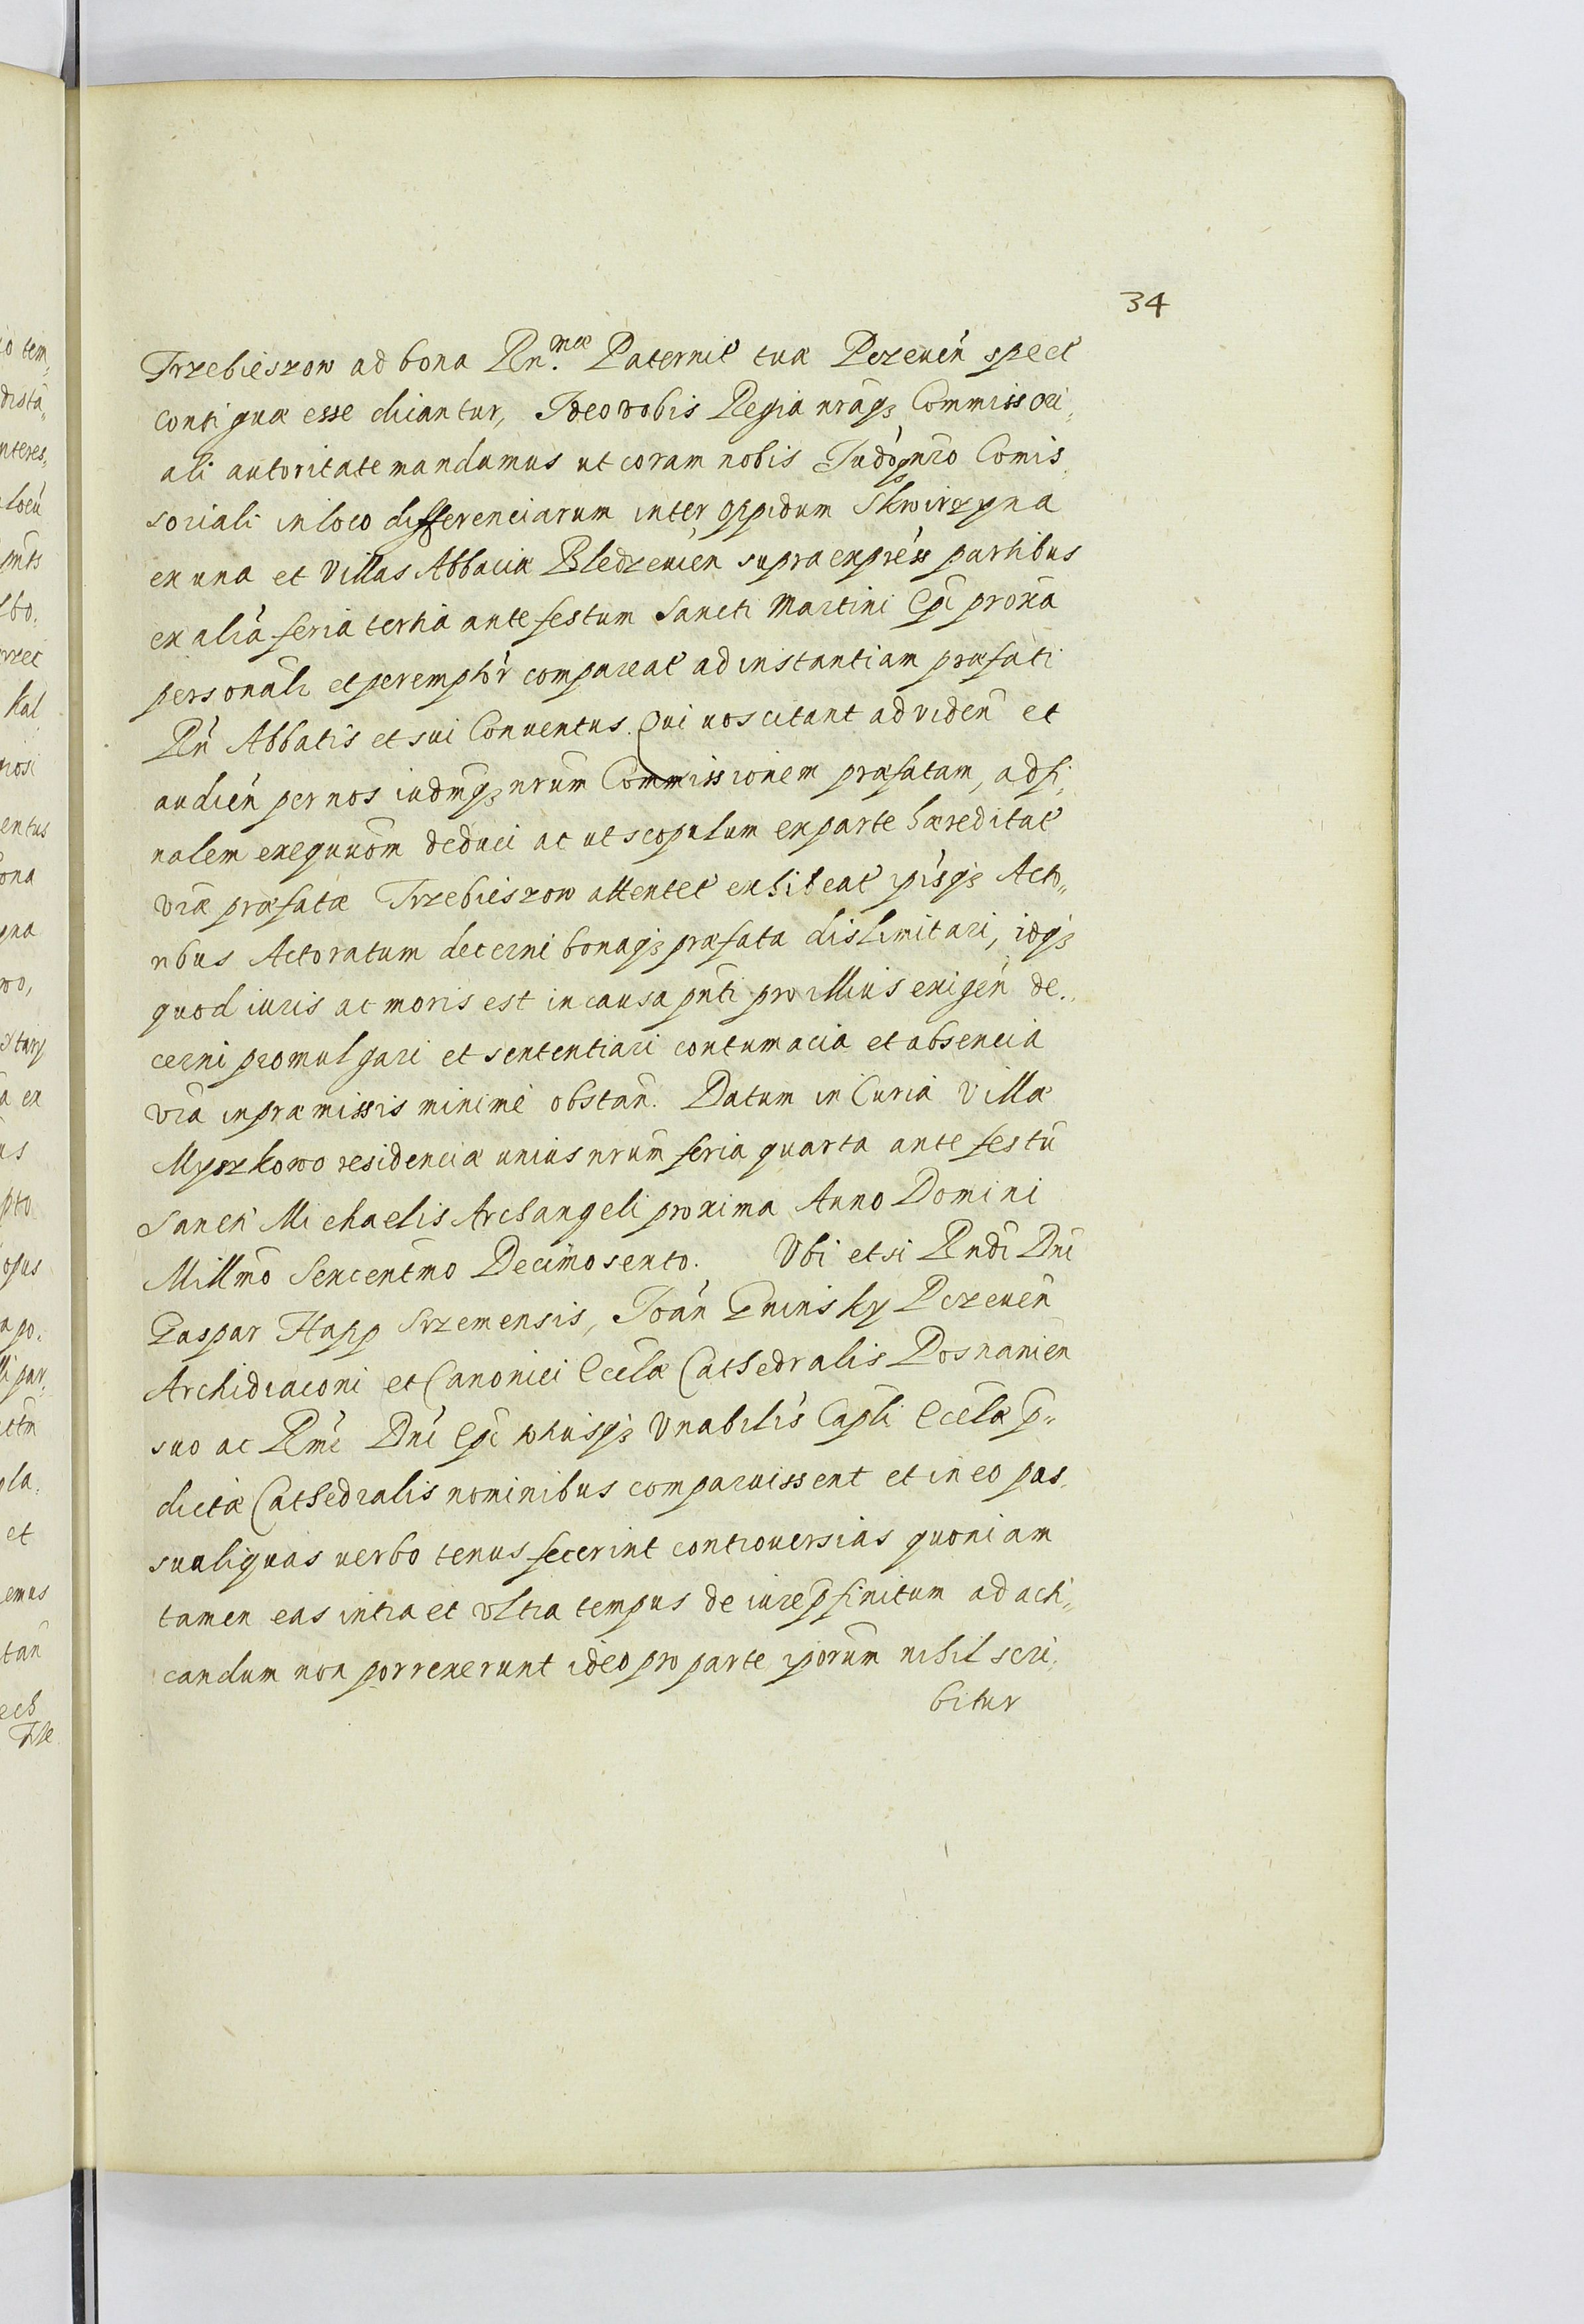 34
Trzebieszow ad bona Rn.mæ Paternit tuæ Pczeuen̄ spect
contiguæ esse dicantur, Ideo vobis Regia nrāq₃ Commissori,
ali autoritate mandamus ut coram nobis Iudōq₃ nr̄o Comis,
soriali in loco differenciarum inter oppidum Skwirzyna
ex una et Villas Abbaciæ Bledzeuien̄ supra expréss partibus
ex aliâ feria tertia ante festum Sancti Martini Epī proxīa
personalr̄ et peremptōr compareat ad instantiam præfati
Rn̄ Abbatis et sui Conuentus. Qui uos citant ad viden̄ et
audien̄ per nos iudm̄q₃ nrum Commissionem præfatam, ad fi,
nalem exequuōm deduci ac ut scopulum ex parte hæreditat
vr̄æ præfatæ Trzebieszow attentet exhibeat ip̄isq₃ Acto„
ribus Actoratum decerni bonaq₃ præfata dislimitari, idq₃
quod iuris ac moris est in causa pn̄ti pro illius exigen̄ de,
cerni promulgari et sententiari contumacia et absencia
vr̄a in præmissis minimè obstan̄. Datum in Curia Villæ
Myszkowo residenciæ unius nrum̄ feria quarta ante festū
Sancti Michaelis Archangeli proxima Anno Domini
Millm̄o Sexcentm̄o Decimosexto. Vbi etsi Rndī Dnī
Gaspar Happ Srzemensis, Ioan̄ Gninsky Pczeuen̄
Archidiaconi et Canonici Eccl̄æ Cathedralis Posnanien̄
suo ac Rmī Dnī Epī totiusq₃ Vnabilis Capl̄i Eccl̄æ p̄„
dictæ Cathedralis nominibus comparuissent et in eo pas,
su aliquas uerbo tenus fecerint controuersias quoniam
tamen eas intra et vltra tempus de iure p̄finitum ad acti„
candum non porrexerunt ideo pro parte ip̄orum nihil scri,
bitur